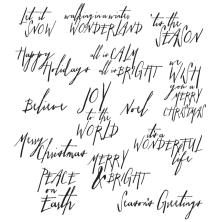 Let it
SNOW
walking in a winter
WONDERLAND
'tis the
SEASON
Happy
Holidays
all is CALM
all is BRIGHT
we
WISH
you a
MERRY
CHRISTMAS
Believe
JOY
to the
WORLD
Noel
Merry
Christmas
it's a
WONDERFUL
life
MERRY
& BRIGHT
PEACE
on
Earth
Season's Greetings